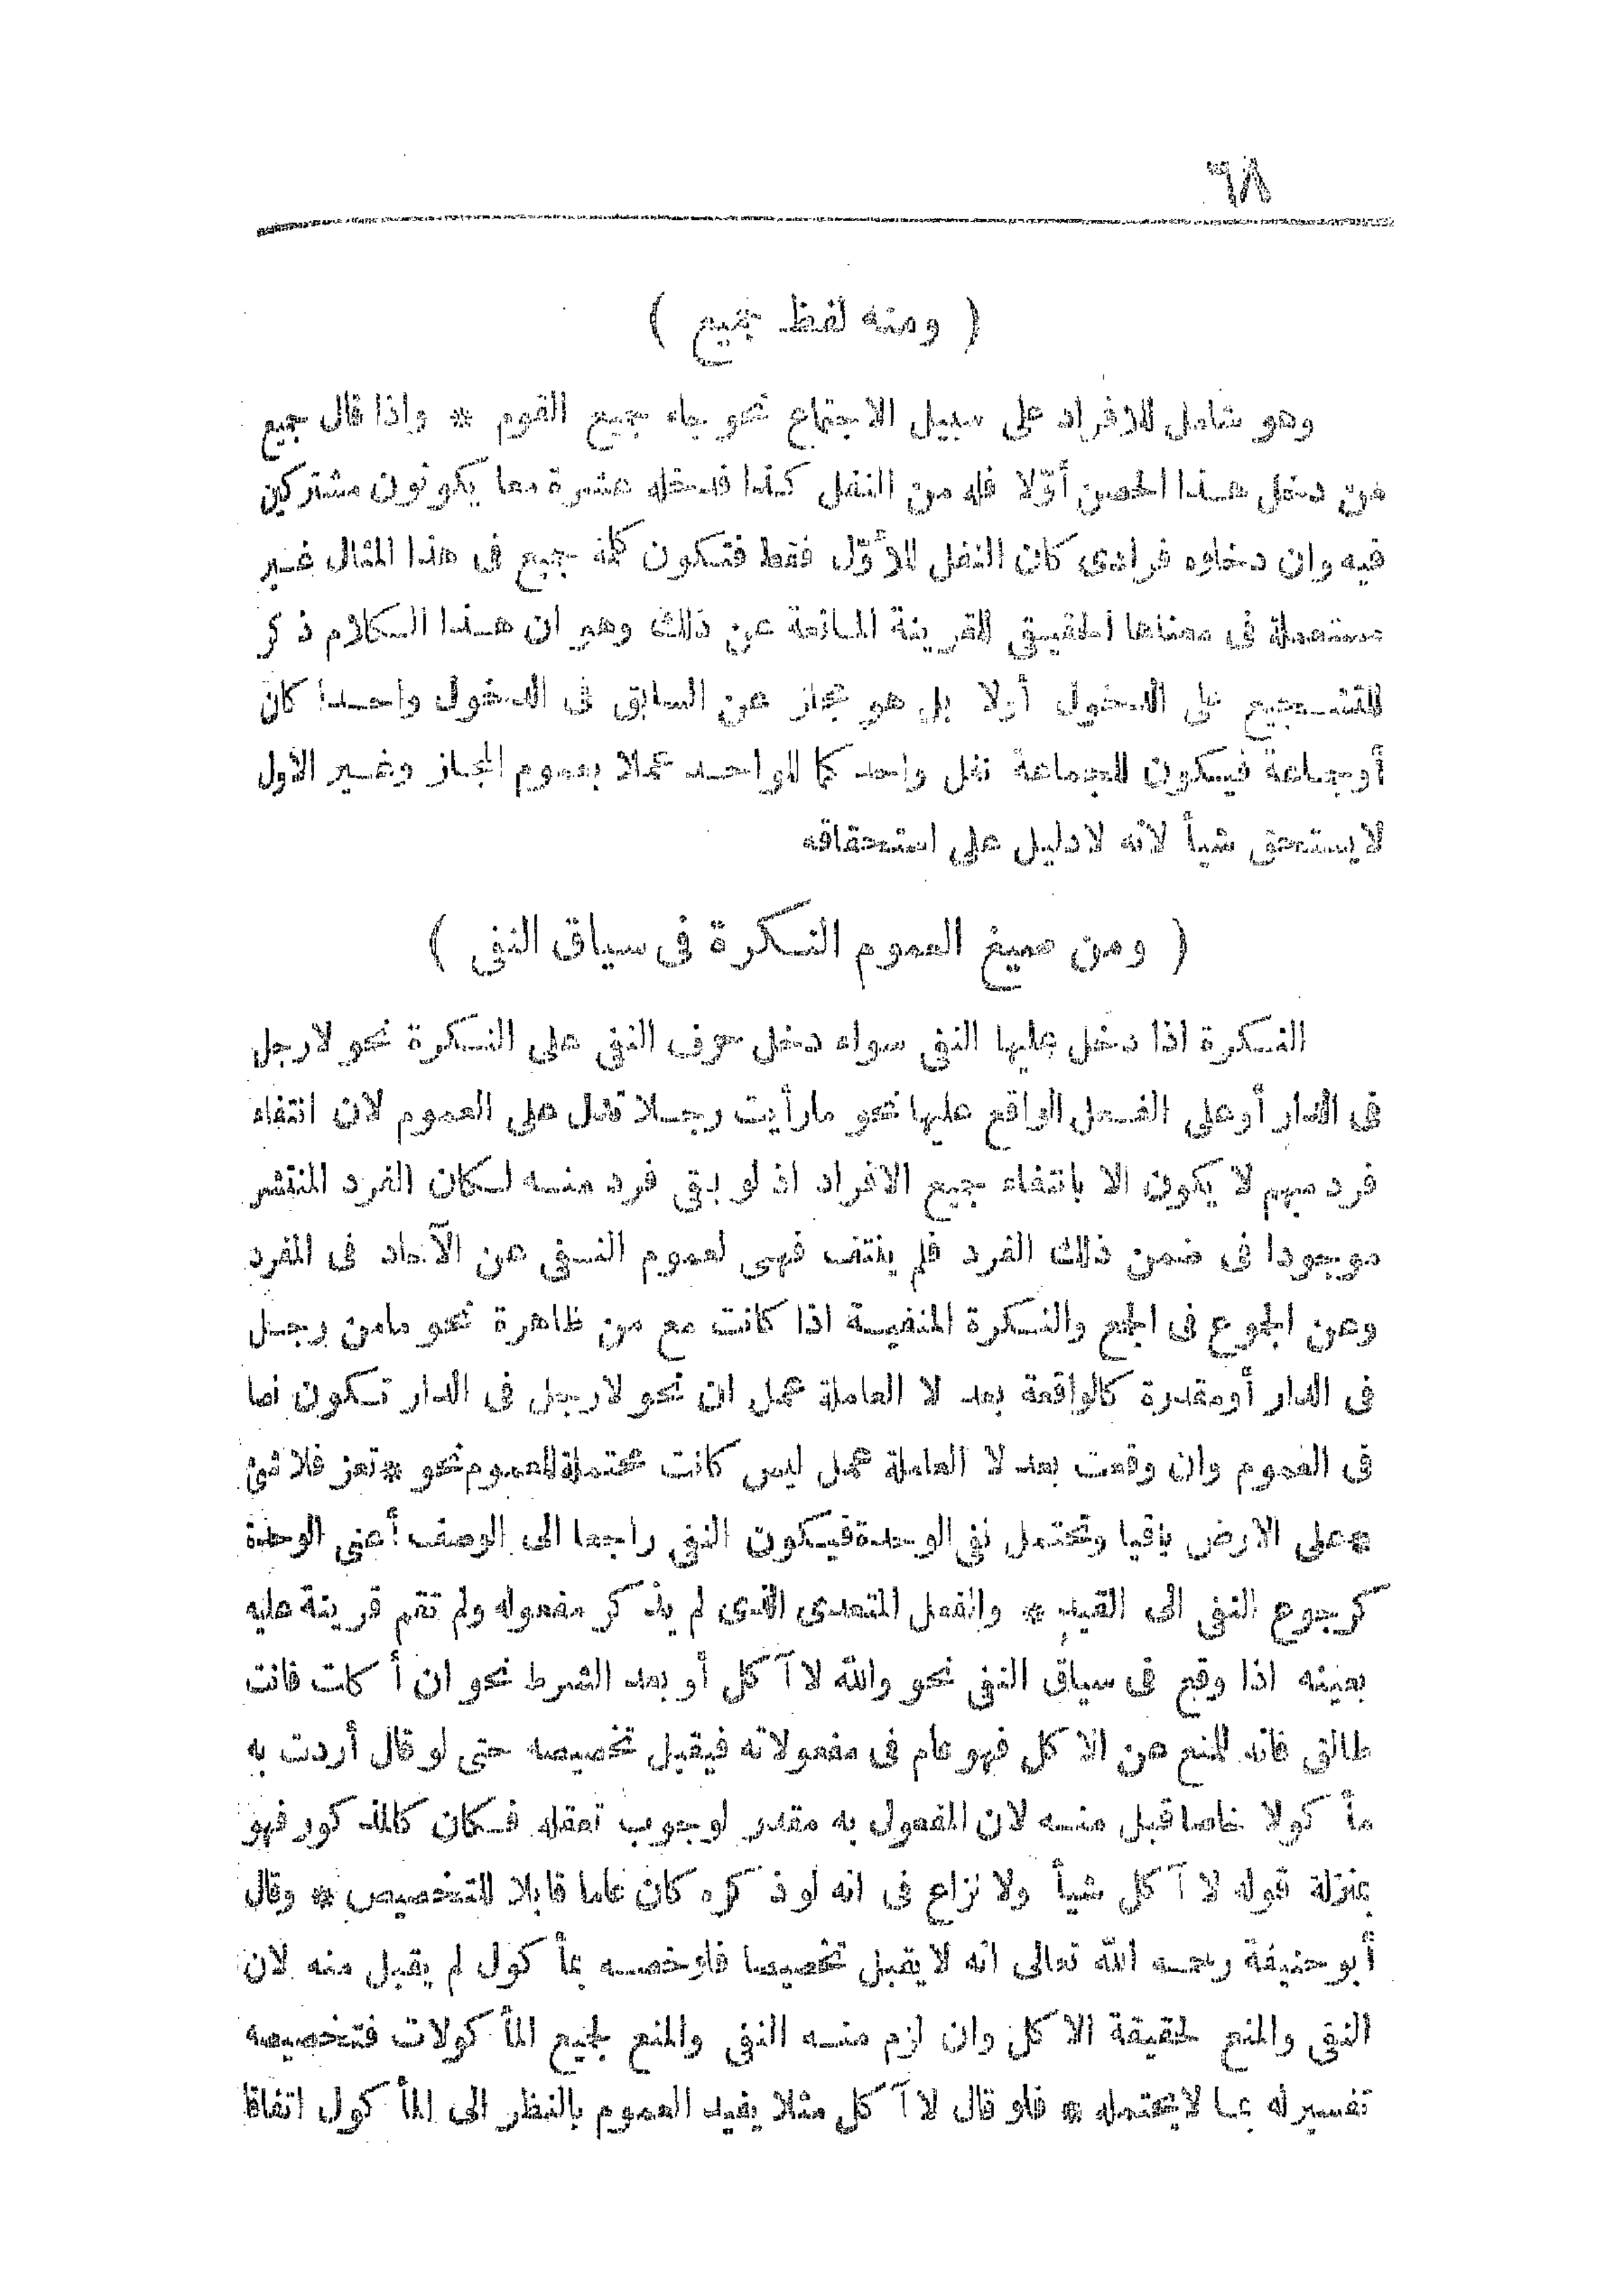 ٦٨
( ومنه لفظ جميع )
وهو شامل للافراد على سبيل الاجتماع نحو جاء جميع القوم * واذا قال جميع
من دخل هذا الحصن أوّلا فله من النفل كذا فدخله عشرة معا يكونون مشتركين
فيه وان دخلوه فرادى كان النفل للأوّل فقط فتكون كلمة جميع فى هذا المثال غير
مستعملة فى معناها الحقيقى للقرينة المانعة عن ذلك وهو ان هذا الكلام ذكر
للتشجيع على الدخول أولا بل هو مجاز عن السابق فى الدخول واحدا كان
أوجماعة فيكون للجماعة نفل واحد كما للواحد عملا بعموم المجاز وغير الاول
لايستحق شيأ لانه لادليل على استحقاقه
( ومن صيغ العموم النكرة فى سياق النفى )
النكرة اذا دخل عليها النفى سواء دخل حرف النفى على النكرة نحو لارجل
فى الدار أوعلى الفعل الواقع عليها نحو مارأيت رجلا تدل على العموم لان انتفاء
فرد مبهم لا يكون الا بانتفاء جميع الافراد اذ لو بقى فرد منه لكان الفرد المنتشر
موجودا فى ضمن ذلك الفرد فلم ينتف فهى لعموم النفى عن الآحاد فى المفرد
وعن الجموع فى الجمع والنكرة المنفية اذا كانت مع من ظاهرة نحو مامن رجل
فى الدار أومقدرة كالواقعة بعد لا العاملة عمل ان نحو لارجل فى الدار تكون نصا
فى العموم وان وقعت بعد لا العاملة عمل ليس كانت محتملة للعموم نحو *تعز فلا شئ
*على الارض باقيا وتحتمل نفى الوحدة فيكون النفى راجعا الى الوصف أعنى الوحدة
كرجوع النفى الى القيد * والفعل المتعدى الذى لم يذكر مفعوله ولم تقم قرينة عليه
بعينه اذا وقع فى سياق النفى نحو والله لا آكل أو بعد الشرط نحو ان أكلت فانت
طالق فانه للمنع عن الاكل فهو عام فى مفعولاته فيقبل تخصيصه حتى لو قال أردت به
مأكولا خاصا قبل منه لان المفعول به مقدر لوجوب تعقله فكان كالمذكور فهو
بمنزلة قوله لا آكل شيأ ولا نزاع فى انه لو ذكره كان عاما قابلا للتخصيص * وقال
أبوحنيفة رحمه الله تعالى انه لايقبل تخصيصا فلوخصه بمأكول لم يقبل منه لان
النفى والمنع لحقيقة الاكل وان لزم منه النفى والمنع لجميع المأكولات فتخصيصه
تفسير له بما لايحتمله * فلو قال لا آكل مثلا يفيد العموم بالنظر الى المأكول اتفاقا